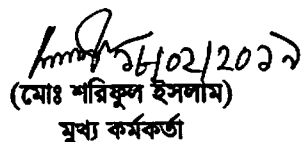 ১৮/০২/২০১৯
(মোঃ শরিফুল ইসলাম)
মুখ্য কর্মকর্তা